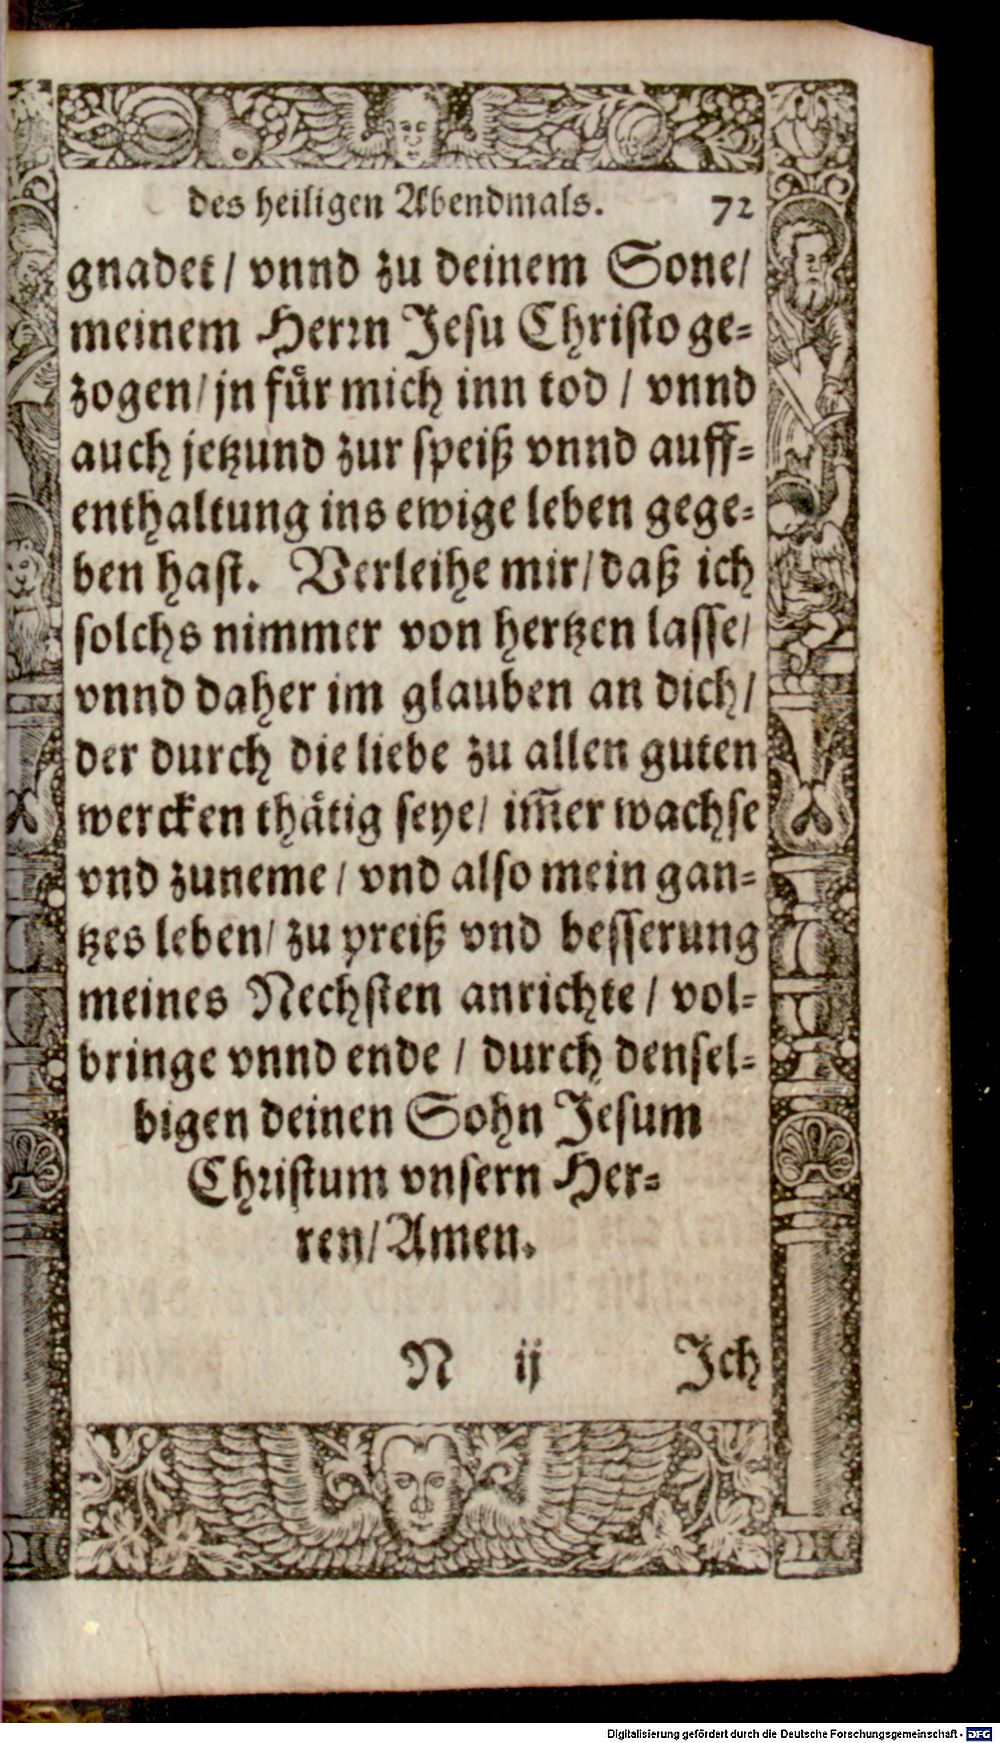 des heiligen Abendmals. 72
gnadet / vnnd zu deinem Sone/
meinem Herꝛn Jesu Christo ge=
zogen/ jn fuͤr mich inn tod / vnnd
auch jetzund zur speiß vnnd auff=
enthaltung ins ewige leben gege=
ben hast. Verleihe mir/ daß ich
solchs nimmer von hertzen lasse/
vnnd daher im glauben an dich/
der durch die liebe zu allen guten
wercken thaͤtig seye/ im̃er wachse
vnd zuneme / vnd also mein gan=
tzes leben/ zu preiß vnd besserung
meines Nechsten anrichte / vol=
bringe vnnd ende / durch densel=
bigen deinen Sohn Jesum
Chꝛistum vnsern Her=
ren/ Amen.
N ij Jch
Digitalisierung gefördert durch die Deutsche Forschungsgemeinschaft - DFG